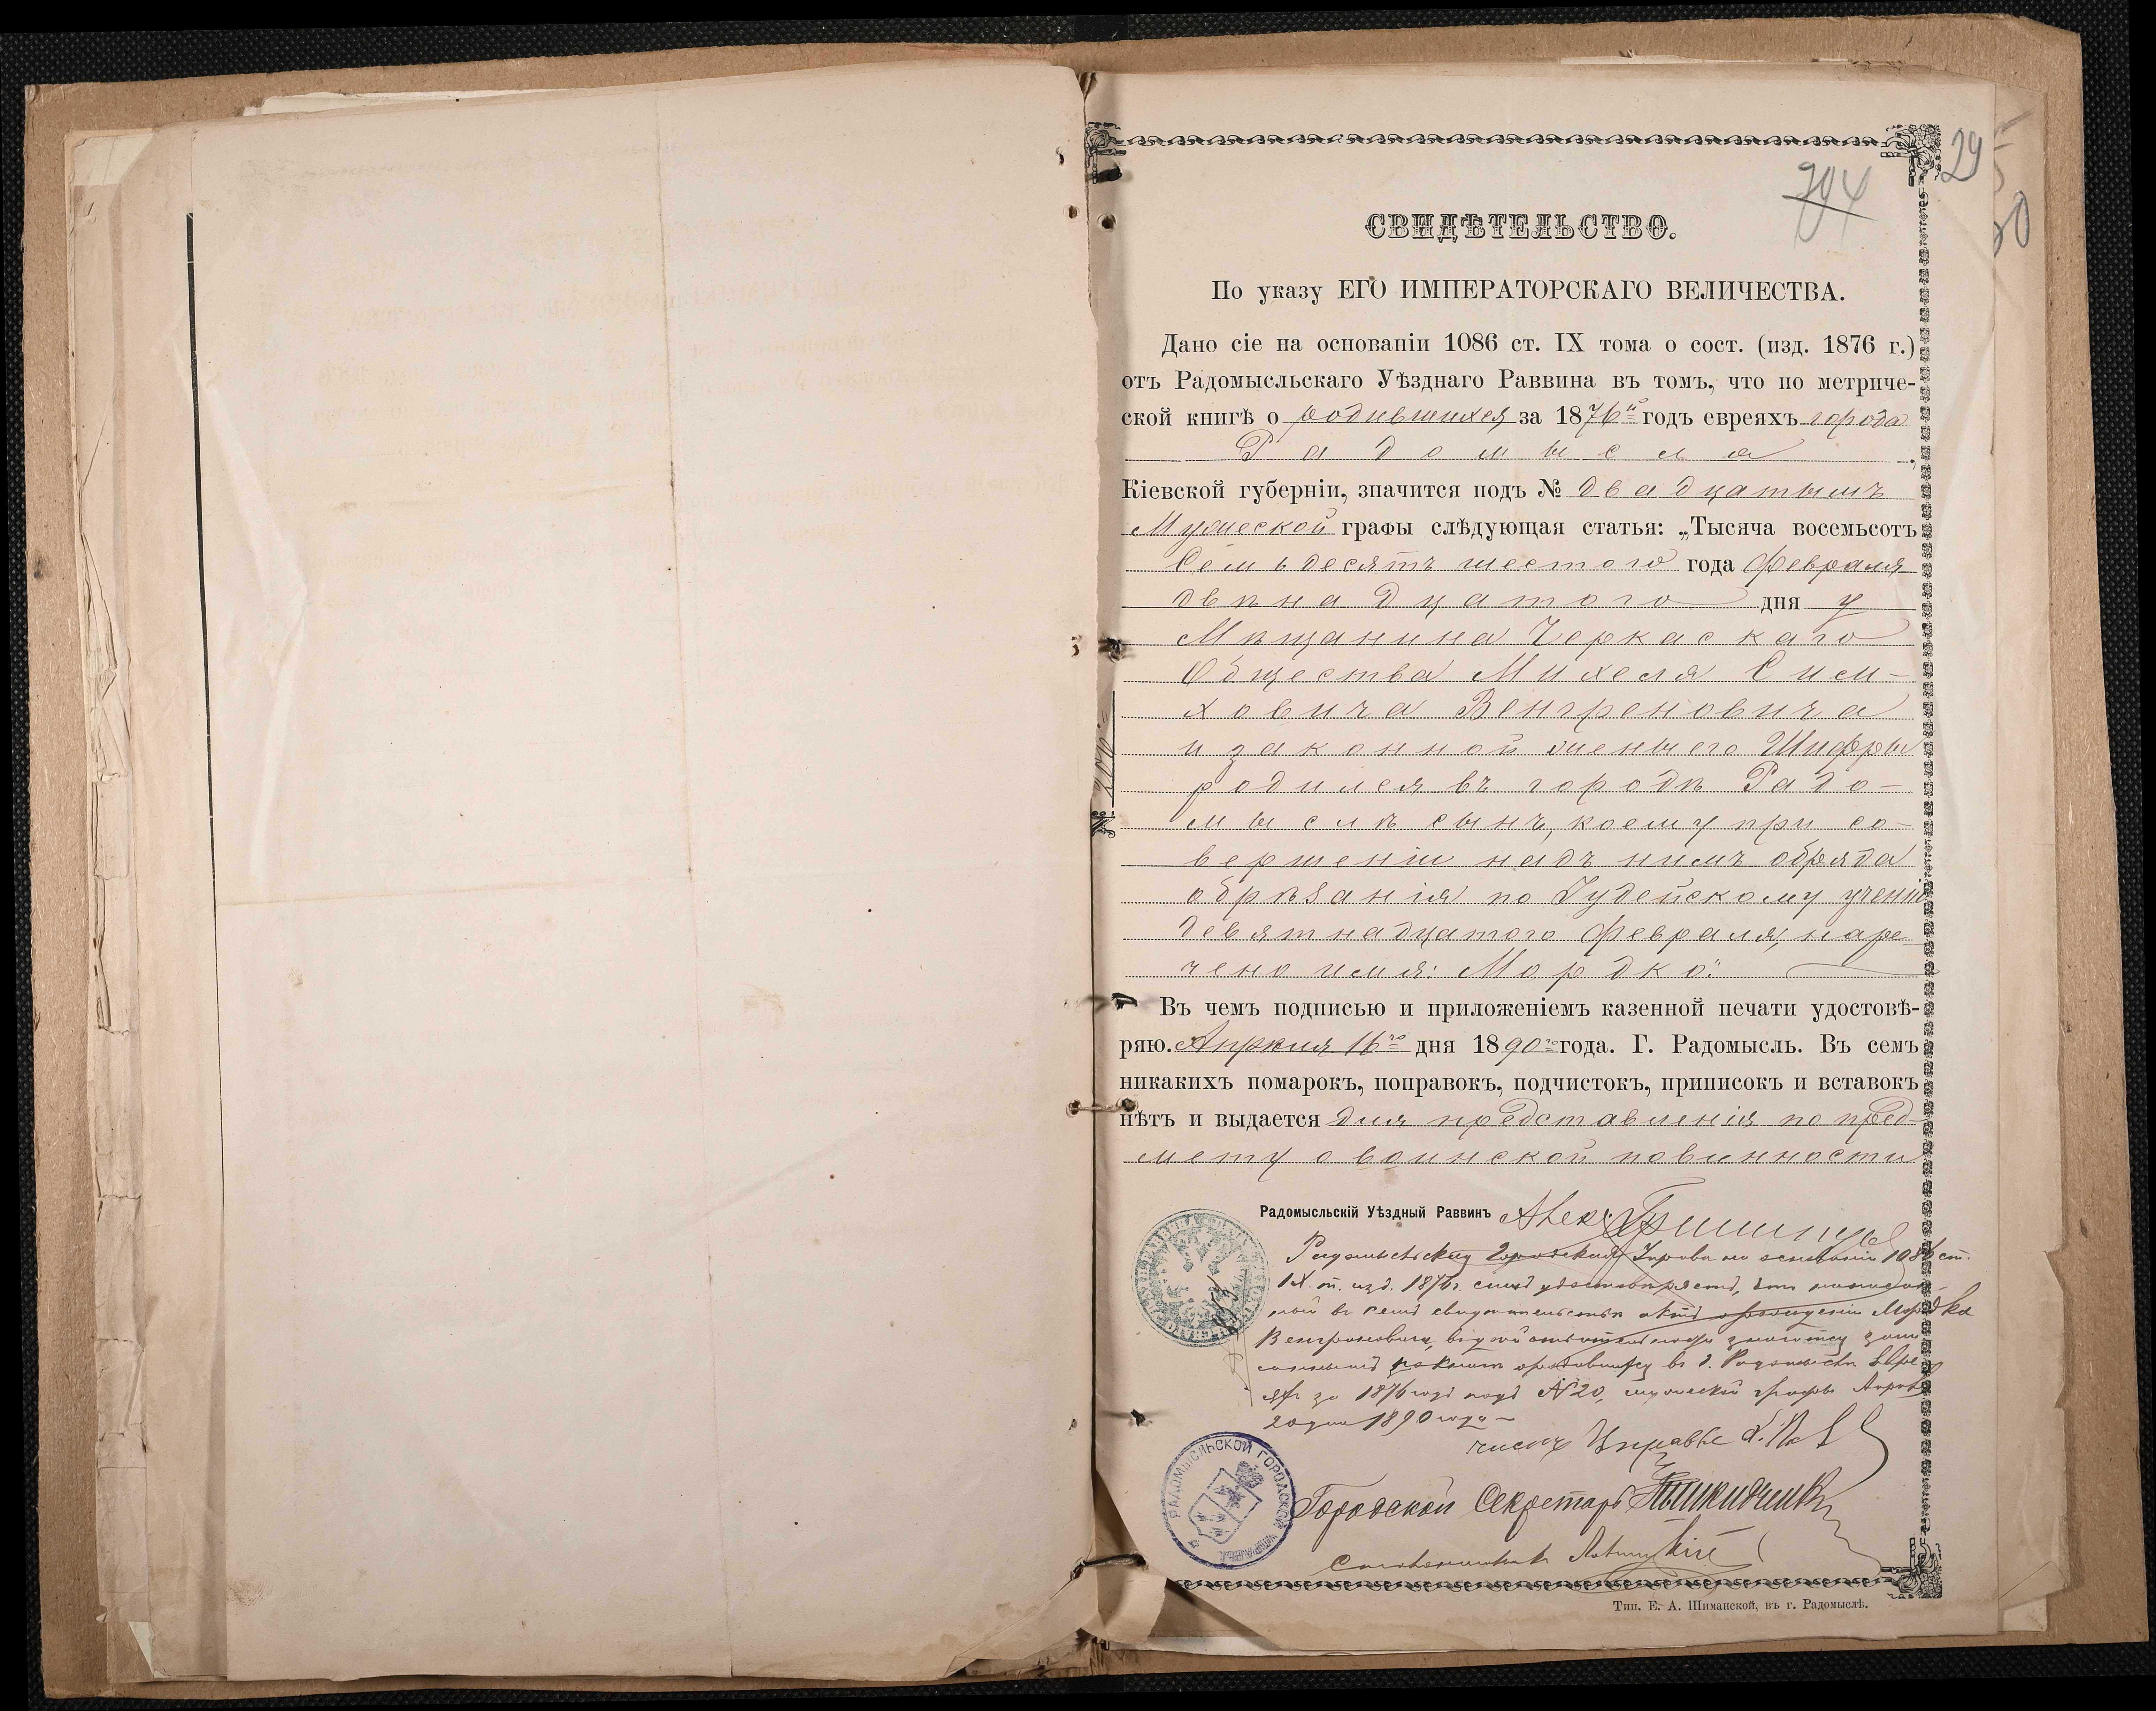 29
794
СВИДѢТЕЛЬСТВО.
По указу ЕГО ИМПЕРАТОРСКАГО ВЕЛИЧЕСТВА.
Дано сіе на основаніи 1086 ст. IX тома о сост. (изд. 1876 г.)
отъ Радомысльскаго Уѣзднаго Раввина въ томъ, что по метриче-
ской книгѣ о родившихся за 1876й годъ евреяхъ города
Радомысля,
Кіевской губерніи, значится подъ № двадцатымъ
Мужеской графы слѣдующая статья: „Тысяча восемьсотъ
семьдесятъ шестого года Февраля
двѣнадцатого дня у
Мѣщанина Черкаскаго
Общества Михеля Сим-
ховича Венгреновича
и законной жены его Шифры
родился въ городѣ Радо-
мыслѣ сынъ, коему при со-
вершеніи надъ нимъ обряда
обрѣзанія по Іудейскому ученію
девятнадцатого Февраля, наре
чено имя: Мордко."
Въ чемъ подписью и приложеніемъ казенной печати удостовѣ-
ряю. Апрѣля 16го дня 1890го года. Г. Радомысль. Въ семъ
никакихъ помарокъ, поправокъ, подчистокъ, приписокъ и вставокъ
нѣтъ и выдается для представленія по пред-
мету о воинской повинности
Радомысльскій Уѣздный Раввинъ
Радомысльская Городская Управа на основаніи 1086 ст.
IX т. изд. 1876 г. симъ удостовѣряетъ, что
въ семъ свидѣтельствѣ актъ о рожденіи Мордка
Венгреновича, въ
родившихся въ г. Радомыслѣ евре
яхъ за 1876 годъ подъ №20, мужеской графы Апрѣля
20 дня 1890 года
Членъ Управы
Городской Секретарь
РАДОМЫСЛЬСКОЙ ГОРОДСКОЙ УПРАВЫ
Тип. Е. А. Шиманской, въ г. Радомыслѣ.